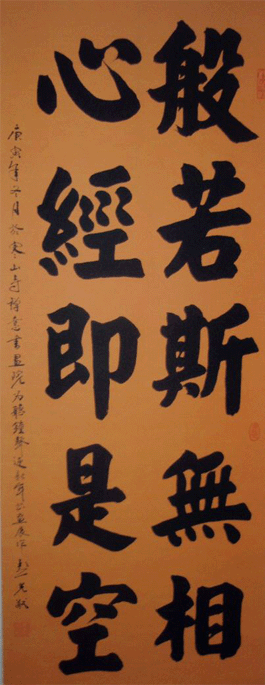 般若斯無相
心經即是空
庚寅年冬月於寒山寺